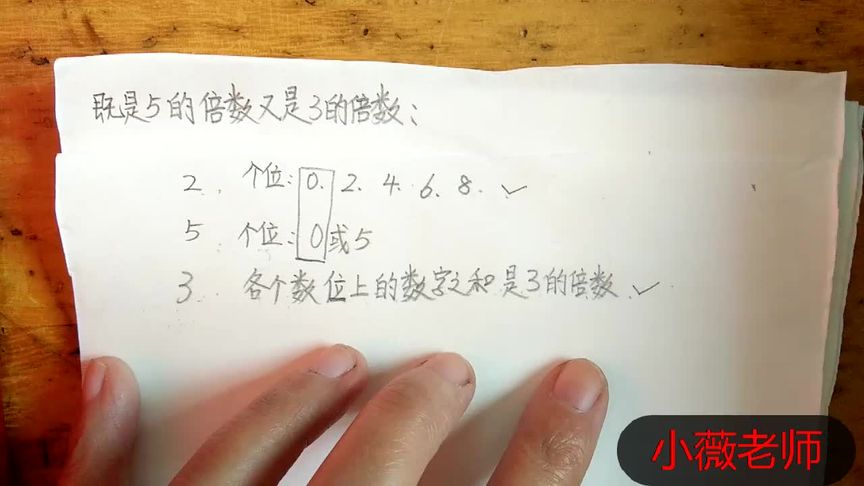 既是5的倍数又是3的倍数：
2. 个位：0. 2. 4. 6. 8. ✓
5 个位：0或5
3. 各个数位上的数字之和是3的倍数. ✓
小薇老师